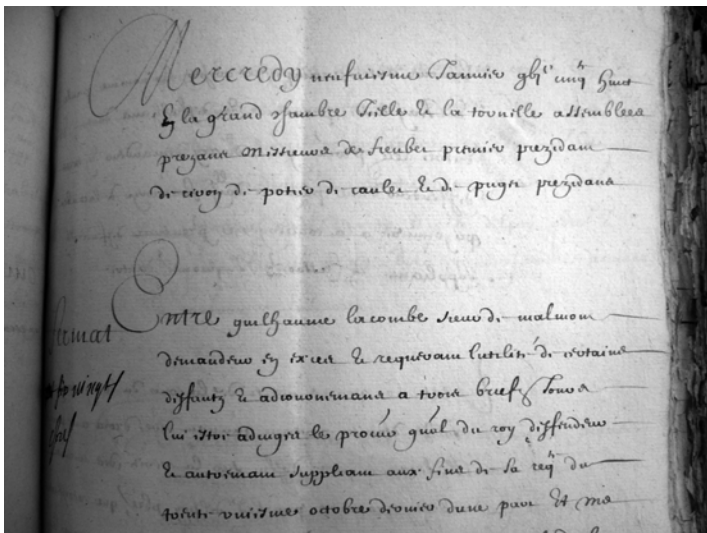 Mercredy neufviesme Janvier gbje cinq huict
En la grand chambre Tielle & la tornelle assemblees
prezans Messieurs de fieubet premier prezidant
de ciron de potier de caulet & de puget prezidans
Entre guilhaume lacombe sieur de malmon
demandeur en excez & requerant lutilité de certains
deffautz & adiournemans a trois briefz Jours
lui estre adiugée le procur gnal du roy deffendeur
& autremant suppliant aux fins de sa reqte du
trente vniesme octobre dernier dune part Et me